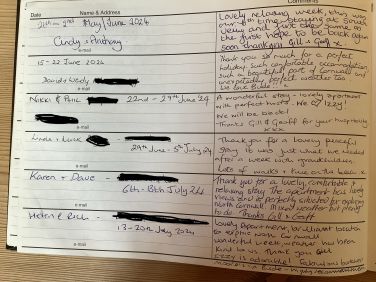 Date
Name & Address
Comments
26th - 2nd May/June 2024
Cindy & Anthony
e-mail
Lovely relaxing week, this was
our first time staying at South
View and just the same as
the first hope to be back again
soon thank you Gill & Geoff x
15 - 22 June 2024
David & Wendy
e-mail
Thank you so much for a perfect
holiday such comfortable accommodation
such a beautiful part of Cornwall and
unexpectedly perfect weather
Nikki & Pete
22nd - 29th June 24
e-mail
A wonderful stay - lovely apartment
with perfect hosts. We ♡ Izzy!
We will be back!
Thanks Gill & Geoff for your hospitality
xxx
Linda + Luke
29th June - 5th July 24
e-mail
Thank you for a lovely peaceful
stay. It was just what we needed
after a week with grandchildren.
Lots of walks + time on the beach x
Karen + Dave -
6th - 13th July 24
e-mail
Thank you for a lovely, comfortable &
relaxing stay. The apartment has lovely
views and is perfectly situated for exploring
north Cornwall. Mixed weather but plenty
to do. Thanks Gill & Geoff
Helen & Rich -
13 - 20th July 2024
e-mail
Lovely apartment, brilliant location
to explore north Cornwall
wonderful week, weather has been
kind to us. Thank you Gill
Izzy is adorable!